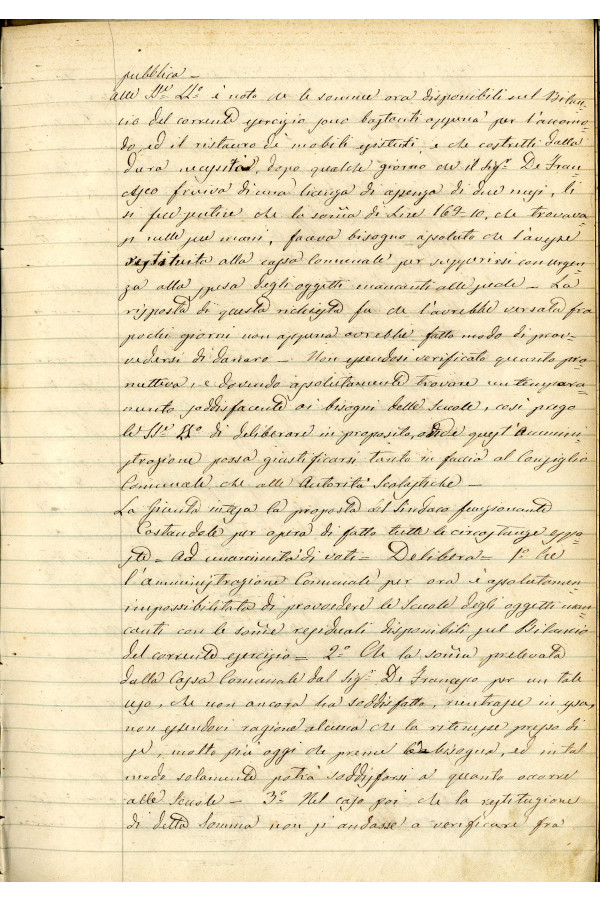 pubblica –
alle SS.e LL.e è noto che le somme ora disponibili sul Bilan=
cio del corrente esercizio sono bastanti appena per l'accomo=
do, ed il ristauro de' mobili esistenti, e che costretti dalla
dura necessità, dopo qualche giorno che il Sig.r De Fran=
cesco fruiva di una licenza di assenza di due mesi, li
si fece sentire che la somma di Lire 169-10, che trovava=
si nelle sue mani, faceva bisogno assoluto che l'avesse
restituita alla cassa Comunale per supperirsi con urgen=
za alla spesa degli oggetti mancanti alle scuole – La
risposta di questa richiesta fu che l'avrebbe versata fra
pochi giorni non appena avrebbe fatto modo di prov=
vedersi di danaro – Non essendosi verificato quanto pro=
metteva, e dovendo assolutamente trovare un tempera=
mento soddisfacente ai bisogni delle Scuole, così prego
le SS.e LL.e di deliberare in proposito, onde quest'Ammini=
strazione possa giustificarsi tanto in faccia al Consiglio
Comunale che alle Autorità Scolastiche –
La Giunta intesa la proposta del Sindaco funzionante
Costandole per opera di fatto tutte le circostanze espo=
ste = Ad unanimità di voti = Delibera = 1.o Che
l'amministrazione Comunale per ora è assolutamen=
impossibilitata di provvedere le Scuole degli oggetti man=
canti con le somme residuali disponibili sul Bilancio
del corrente esercizio = 2.o Che la somma prelevata
dalla Cassa Comunale dal sig.r De Francesco per un tale
uso, che non ancora ha soddisfatto, rientrasse in essa,
non essendovi ragione alcuna che la ritenesse presso di
sé, molto più oggi che preme bisogna, ed in tal
modo solamente potrà soddisfarsi a quanto occorre
alle Scuole – 3.o Nel caso poi che la restituzione
di detta Somma non si andasse a verificare fra